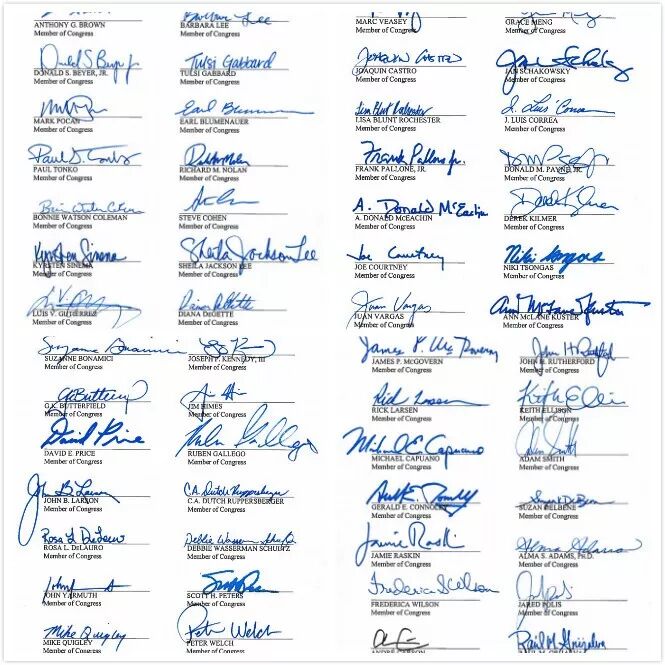 Barbara Lee
ANTHONY G. BROWN
Member of Congress
BARBARA LEE
Member of Congress
Donald S Beyer Jr
DONALD S. BEYER, JR.
Member of Congress
Tulsi Gabbard
TULSI GABBARD
Member of Congress
MARK POCAN
Member of Congress
Earl Blumenauer
EARL BLUMENAUER
Member of Congress
Paul D. Tonko
PAUL TONKO
Member of Congress
RICHARD M. NOLAN
Member of Congress
Bonnie Watson Coleman
BONNIE WATSON COLEMAN
Member of Congress
STEVE COHEN
Member of Congress
Kyrsten Sinema
KYRSTEN SINEMA
Member of Congress
Sheila Jackson Lee
SHEILA JACKSON LEE
Member of Congress
LUIS V. GUTIERREZ
Member of Congress
Diana DeGette
DIANA DEGETTE
Member of Congress
Suzanne Bonamici
SUZANNE BONAMICI
Member of Congress
JOSEPH P. KENNEDY, III
Member of Congress
GK Butterfield
G.K. BUTTERFIELD
Member of Congress
JIM HIMES
Member of Congress
David Price
DAVID E. PRICE
Member of Congress
Ruben Gallego
RUBEN GALLEGO
Member of Congress
John B. Larson
JOHN B. LARSON
Member of Congress
C.A. Dutch Ruppersberger
C.A. DUTCH RUPPERSBERGER
Member of Congress
Rosa L DeLauro
ROSA L. DELAURO
Member of Congress
Debbie Wasserman Schultz
DEBBIE WASSERMAN SCHULTZ
Member of Congress
JOHN YARMUTH
Member of Congress
SCOTT H. PETERS
Member of Congress
Mike Quigley
MIKE QUIGLEY
Member of Congress
Peter Welch
PETER WELCH
Member of Congress
MARC VEASEY
Member of Congress
GRACE MENG
Member of Congress
Joaquin Castro
JOAQUIN CASTRO
Member of Congress
Jan Schakowsky
JAN SCHAKOWSKY
Member of Congress
Lisa Blunt Rochester
LISA BLUNT ROCHESTER
Member of Congress
J. Luis Correa
J. LUIS CORREA
Member of Congress
Frank Pallone, Jr.
FRANK PALLONE, JR.
Member of Congress
DONALD M. PAYNE, JR.
Member of Congress
A. Donald McEachin
A. DONALD MCEACHIN
Member of Congress
Derek Kilmer
DEREK KILMER
Member of Congress
Joe Courtney
JOE COURTNEY
Member of Congress
Niki Tsongas
NIKI TSONGAS
Member of Congress
Juan Vargas
JUAN VARGAS
Member of Congress
Ann McLane Kuster
ANN MCLANE KUSTER
Member of Congress
James P. McGovern
JAMES P. MCGOVERN
Member of Congress
John H Rutherford
JOHN H. RUTHERFORD
Member of Congress
Rick Larsen
RICK LARSEN
Member of Congress
Keith Ellison
KEITH ELLISON
Member of Congress
Michael E Capuano
MICHAEL CAPUANO
Member of Congress
Adam Smith
ADAM SMITH
Member of Congress
GERALD E. CONNOLLY
Member of Congress
Suzan DelBene
SUZAN DELBENE
Member of Congress
Jamie Raskin
JAMIE RASKIN
Member of Congress
Alma Adams
ALMA S. ADAMS, PH.D.
Member of Congress
Frederica S Wilson
FREDERICA WILSON
Member of Congress
JARED POLIS
Member of Congress
ANDRE CARSON
Raul M. Grijalva